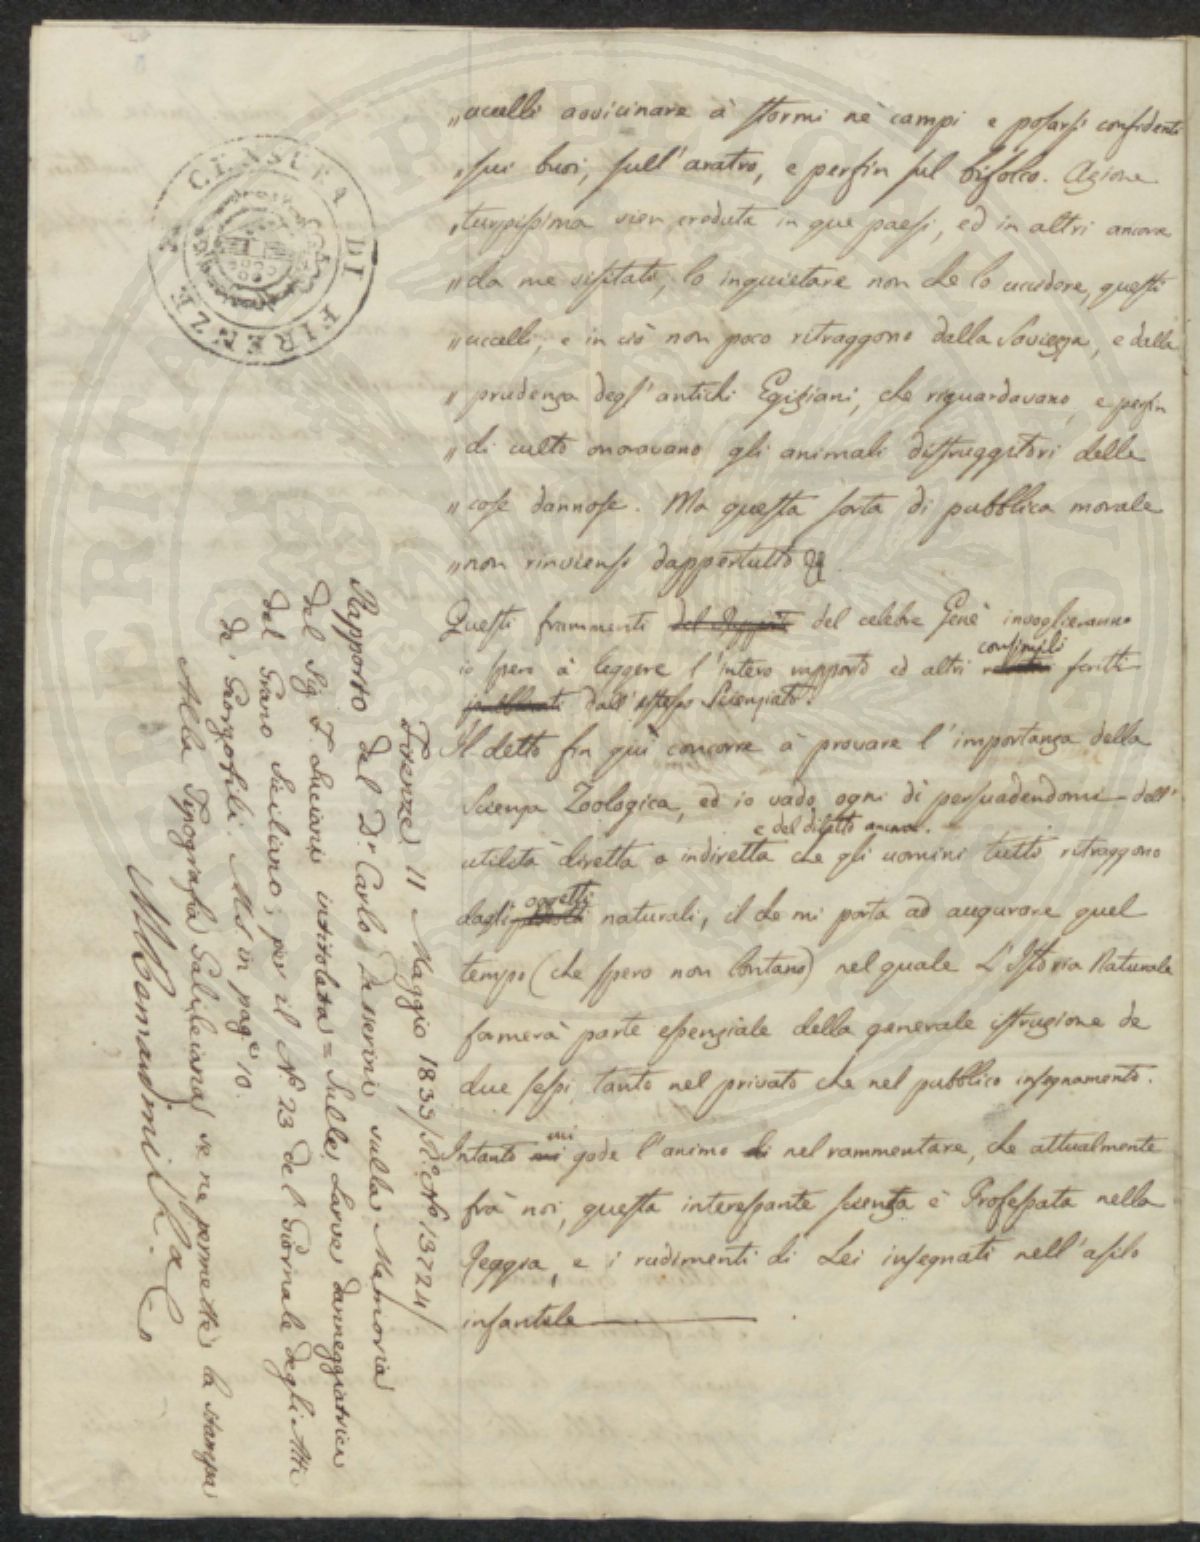 „ uccelli avvicinare à stormi nè campi e posarsi confidenti
„ sui buoi, sull'aratro, e perfin sul bifolco. Azione
„ turpissima vien creduta in que paesi, ed in altri ancora
„ da me visitati, lo inquietare non che lo uccidere, questi
„ uccelli, e in ciò non poco ritraggono dalla saviezza, e dalla
„ prudenza degl'antichi Egiziani, che riguardavano, e perfin
„ di culto onoravano gli animali distruggitori delle
„ cose dannose. Ma questa sorta di pubblica morale
„ non rinviensi dappertutto
Questi frammenti del Rapporto del celebre Genè invoglieranno
consimili
io spero à leggere l'intero rapporto ed altri scritti
pubblicati dall'istesso Scienziato.
Il detto fin quì concorre à provare l'importanza della
Scienza Zoologica, ed io vado ogni dì persuadendomi dell'
e del diletto ancora.
utilità diretta o indiretta che gli uomini tutti ritraggono
oggetti
dagli naturali, il che mi porta ad augurare quel
tempo (che spero non lontano) nel quale L'Istoria Naturale
formerà parte essenziale della generale istruzione de
due sessi, tanto nel privato che nel pubblico insegnamento.
mi
Intanto mi gode l'animo di nel rammentare, che attualmente
frà noi, questa interessante scienza è Professata nella
Reggia, e i rudimenti di Lei insegnati nell'asilo
infantile
CENSURA DI FIRENZE
Firenze 11 Maggio 1833/ N.o 13724/
Rapporto del D.r Carlo Passerini sulla Memoria
del Sig. F. Luciani intitolata = Sulle Larve danneggiatrici
del Grano Siciliano; per il N.o 23 del Giornale degli Atti
de' Georgofili. Ms in pag.e 10.
Alla Tipografia Galileiana se ne permette la stampa